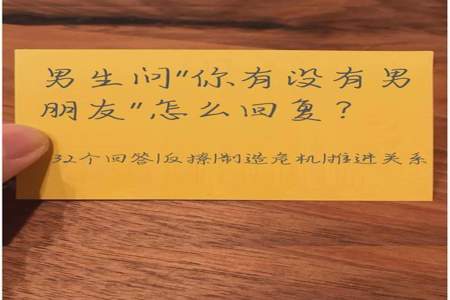 男生问"你有没有男
朋友"怎么回复？
32个回答|反撩|制造危机|推进关系